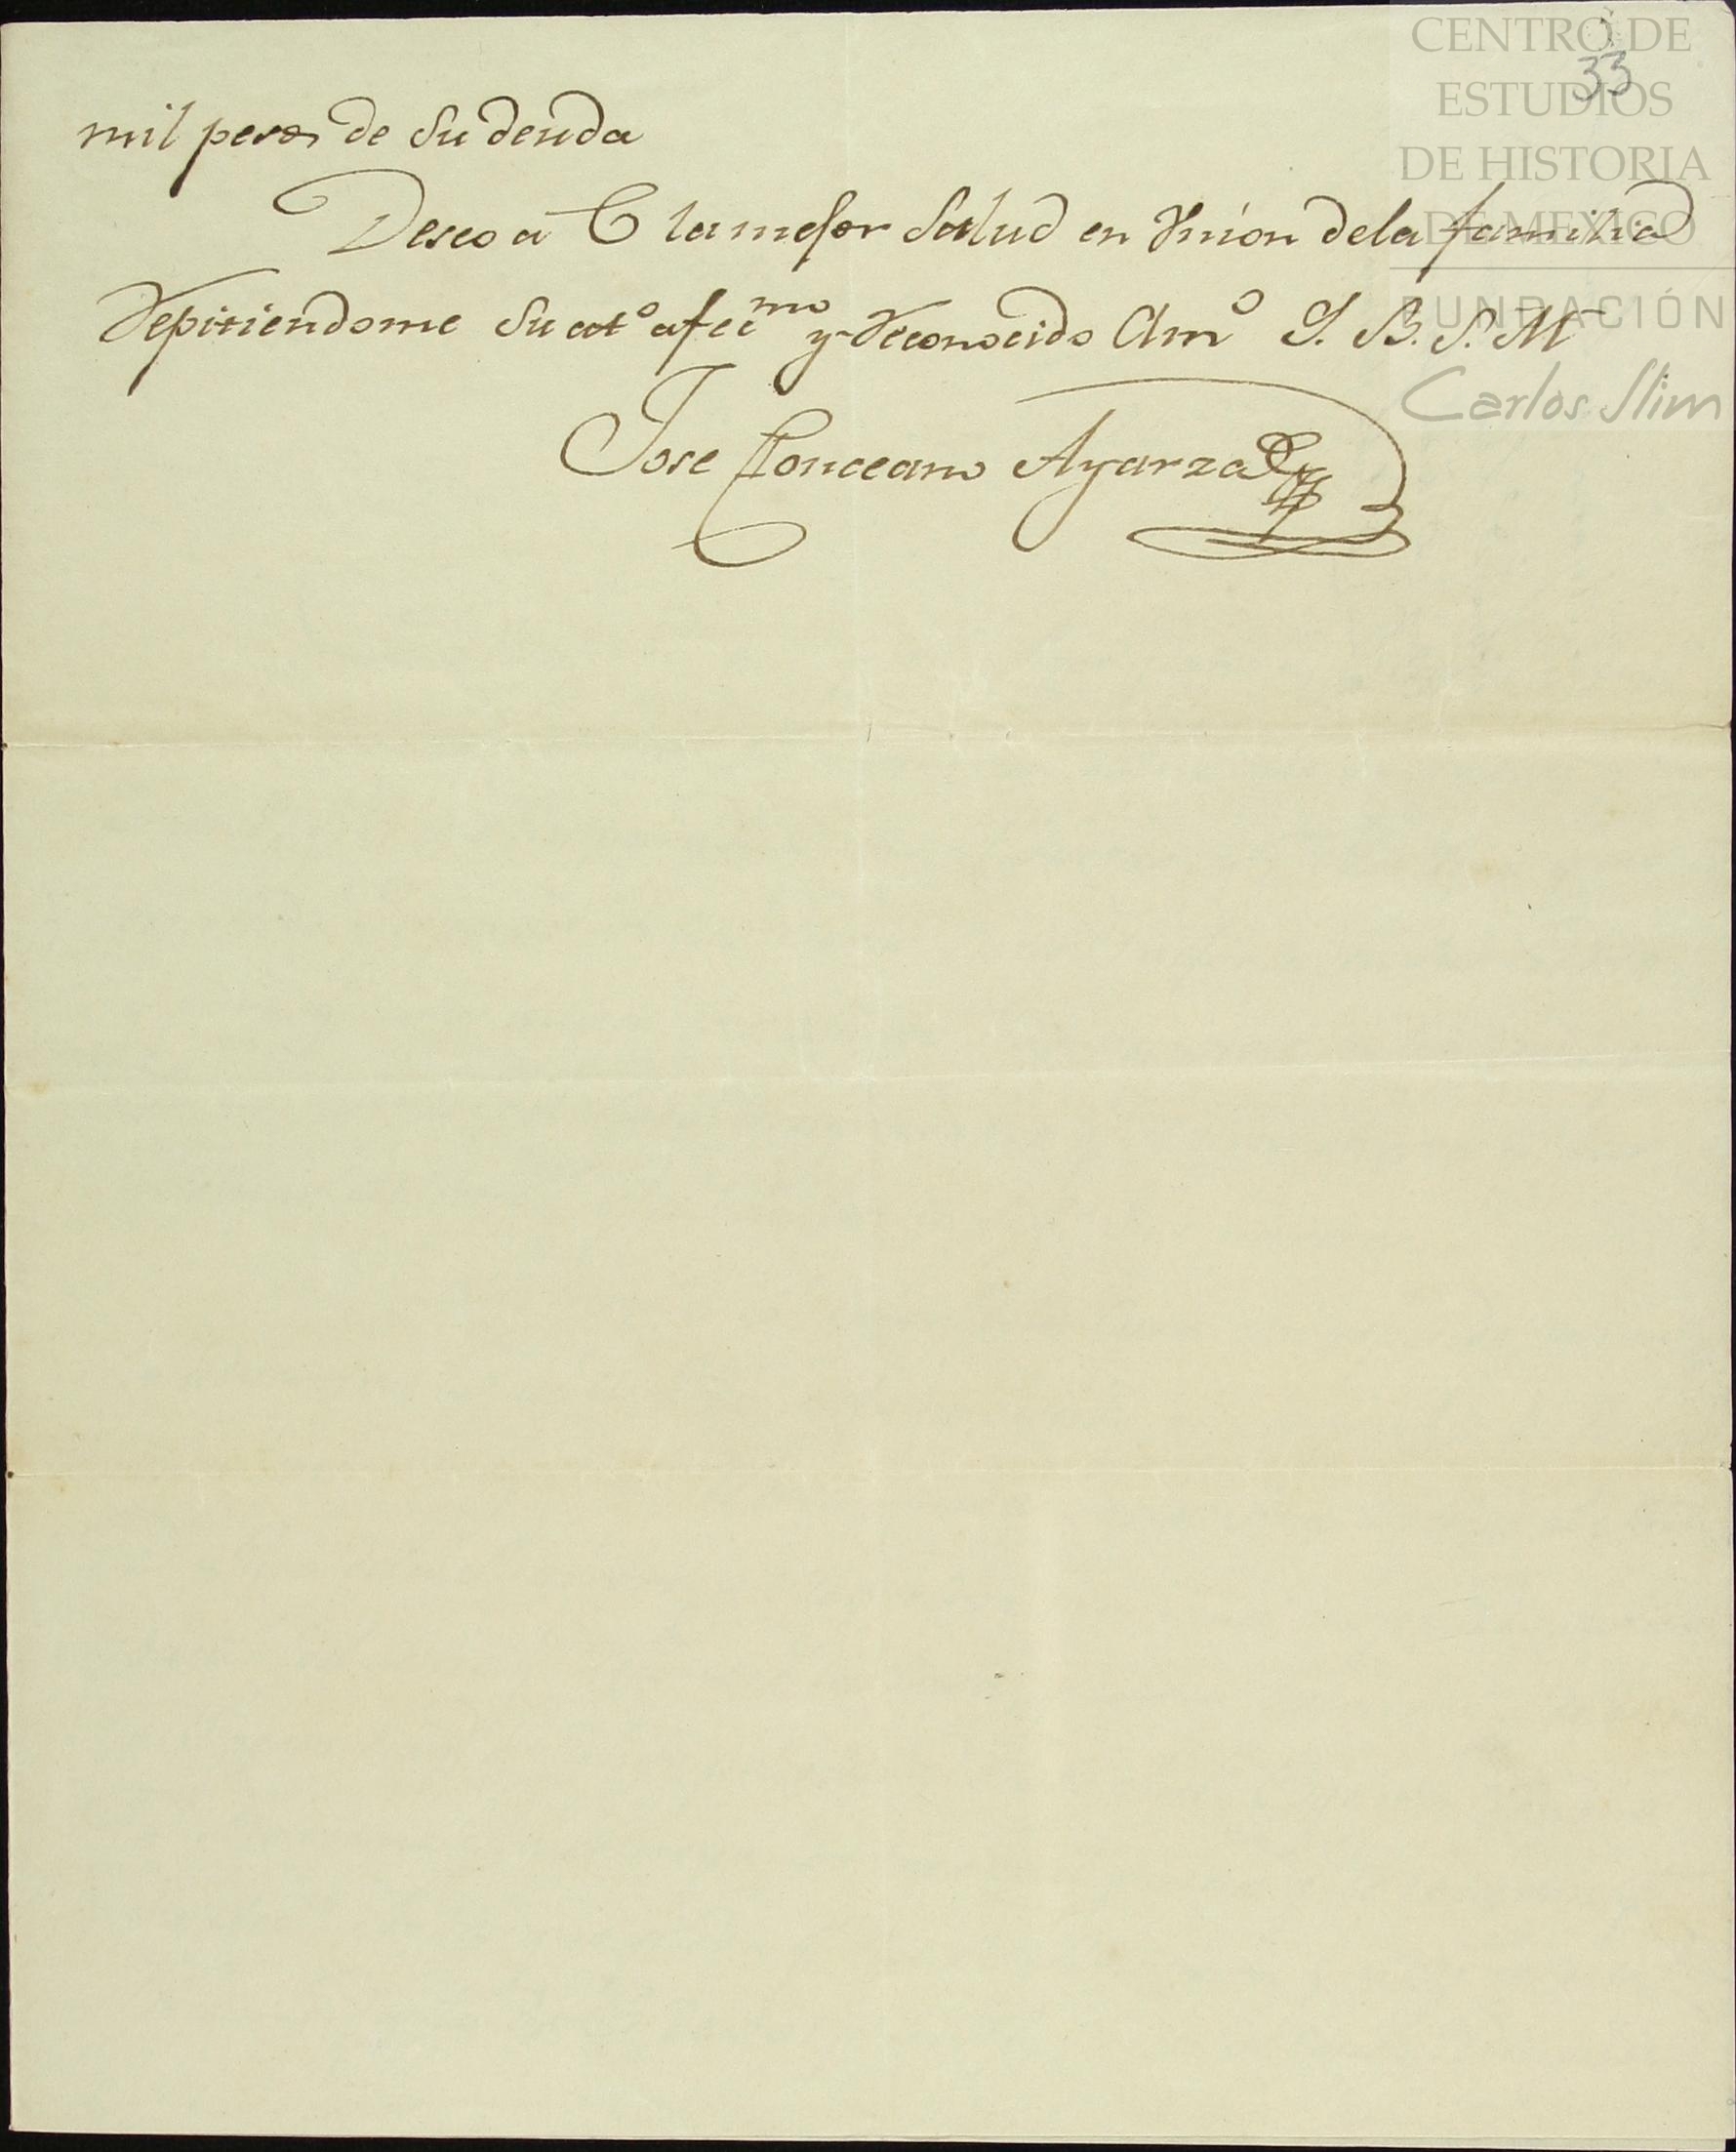 CENTRO DE
ESTUDIOS
DE HISTORIA
DE MEXICO
FUNDACIÓN
Carlos Slim
33
mil pesos de su deuda
Deseo a V la mejor salud en union de la familia
repitiendome su at.o afec.mo y reconocido Am.o S. B. S. M
Jose Ponceano Ayarza